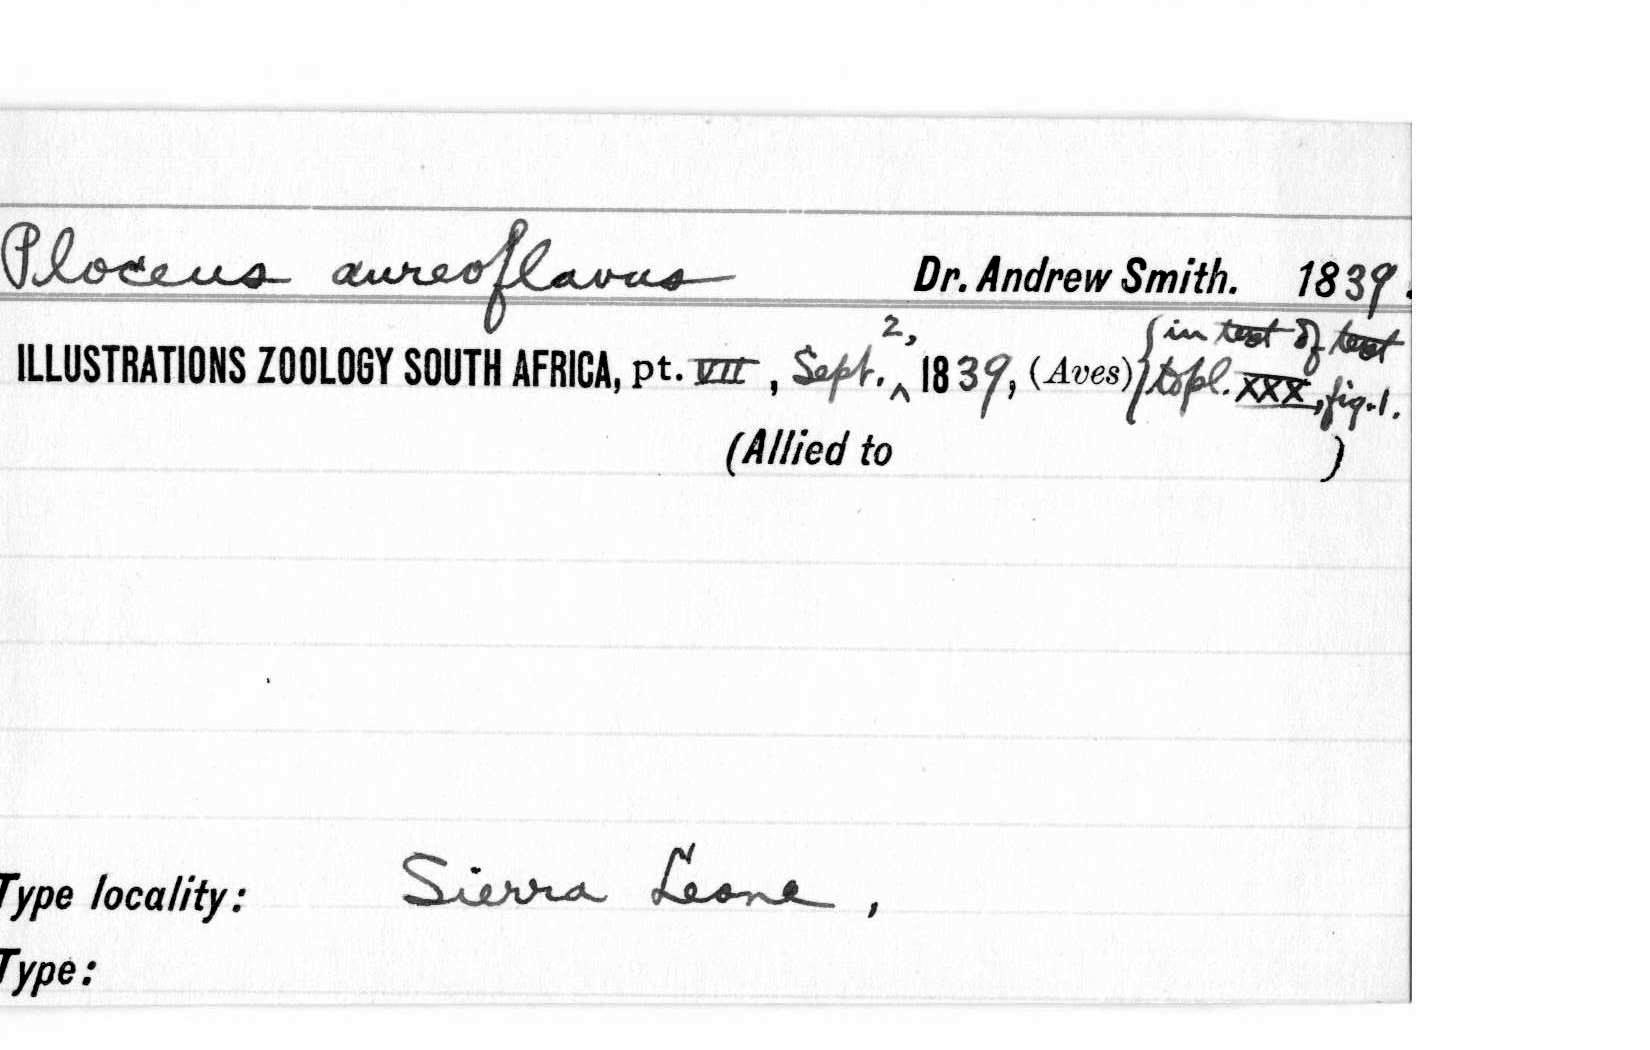 Ploceus aureoflavus Dr. Andrew Smith. 1839.
ILLUSTRATIONS ZOOLOGY SOUTH AFRICA, pt. VII, Sept. 2, 1839, (Aves) {in text of text to pl. XXX, fig. 1.
(Allied to )
Type locality: Sierra Leone,
Type: